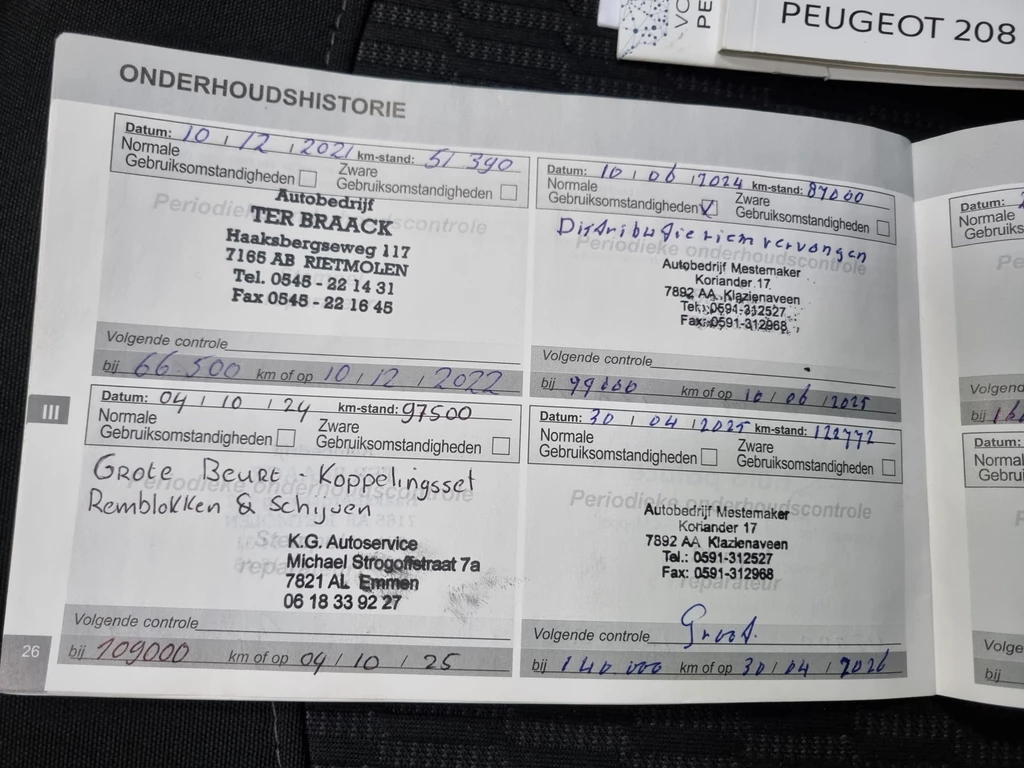 VO
PE
PEUGEOT 208
ONDERHOUDSHISTORIE
Datum: 10 / 12 / 2021 km-stand: 51 390
Normale
Gebruiksomstandigheden
Zware
Gebruiksomstandigheden
Autobedrijf
TER BRAACK
Haaksbergseweg 117
7165 AB RIETMOLEN
Tel. 0545 - 22 14 31
Fax 0545 - 22 16 45
Volgende controle
bij 66 500 km of op 10 / 12 / 2022
Datum: 10 / 06 / 2024 km-stand: 87000
Normale
Gebruiksomstandigheden
Zware
Gebruiksomstandigheden
Distributieriem vervangen
Periodieke onderhoudscontrole
Autobedrijf Mestemaker
Koriander 17
7892 AA Klazienaveen
Tel.: 0591-312527
Fax: 0591-312968
Volgende controle
bij 99000 km of op 10 / 06 / 2025
III
Datum: 04 / 10 / 24 km-stand: 97500
Normale
Gebruiksomstandigheden
Zware
Gebruiksomstandigheden
Grote Beurt - Koppelingsset
Remblokken & Schijven
K.G. Autoservice
Michael Strogoffstraat 7a
7821 AL Emmen
06 18 33 92 27
Volgende controle
bij 109000 km of op 04 / 10 / 25
Datum: 30 / 04 / 2025 km-stand: 122772
Normale
Gebruiksomstandigheden
Zware
Gebruiksomstandigheden
Periodieke onderhoudscontrole
Autobedrijf Mestemaker
Koriander 17
7892 AA Klazienaveen
Tel.: 0591-312527
Fax: 0591-312968
reparateur
Volgende controle Groot.
bij 140.000 km of op 30 / 04 / 2026
26
Datum:
Normale
Gebruiks
Pe
Volgend
bij
Datum:
Normal
Gebrui
Volge
bij